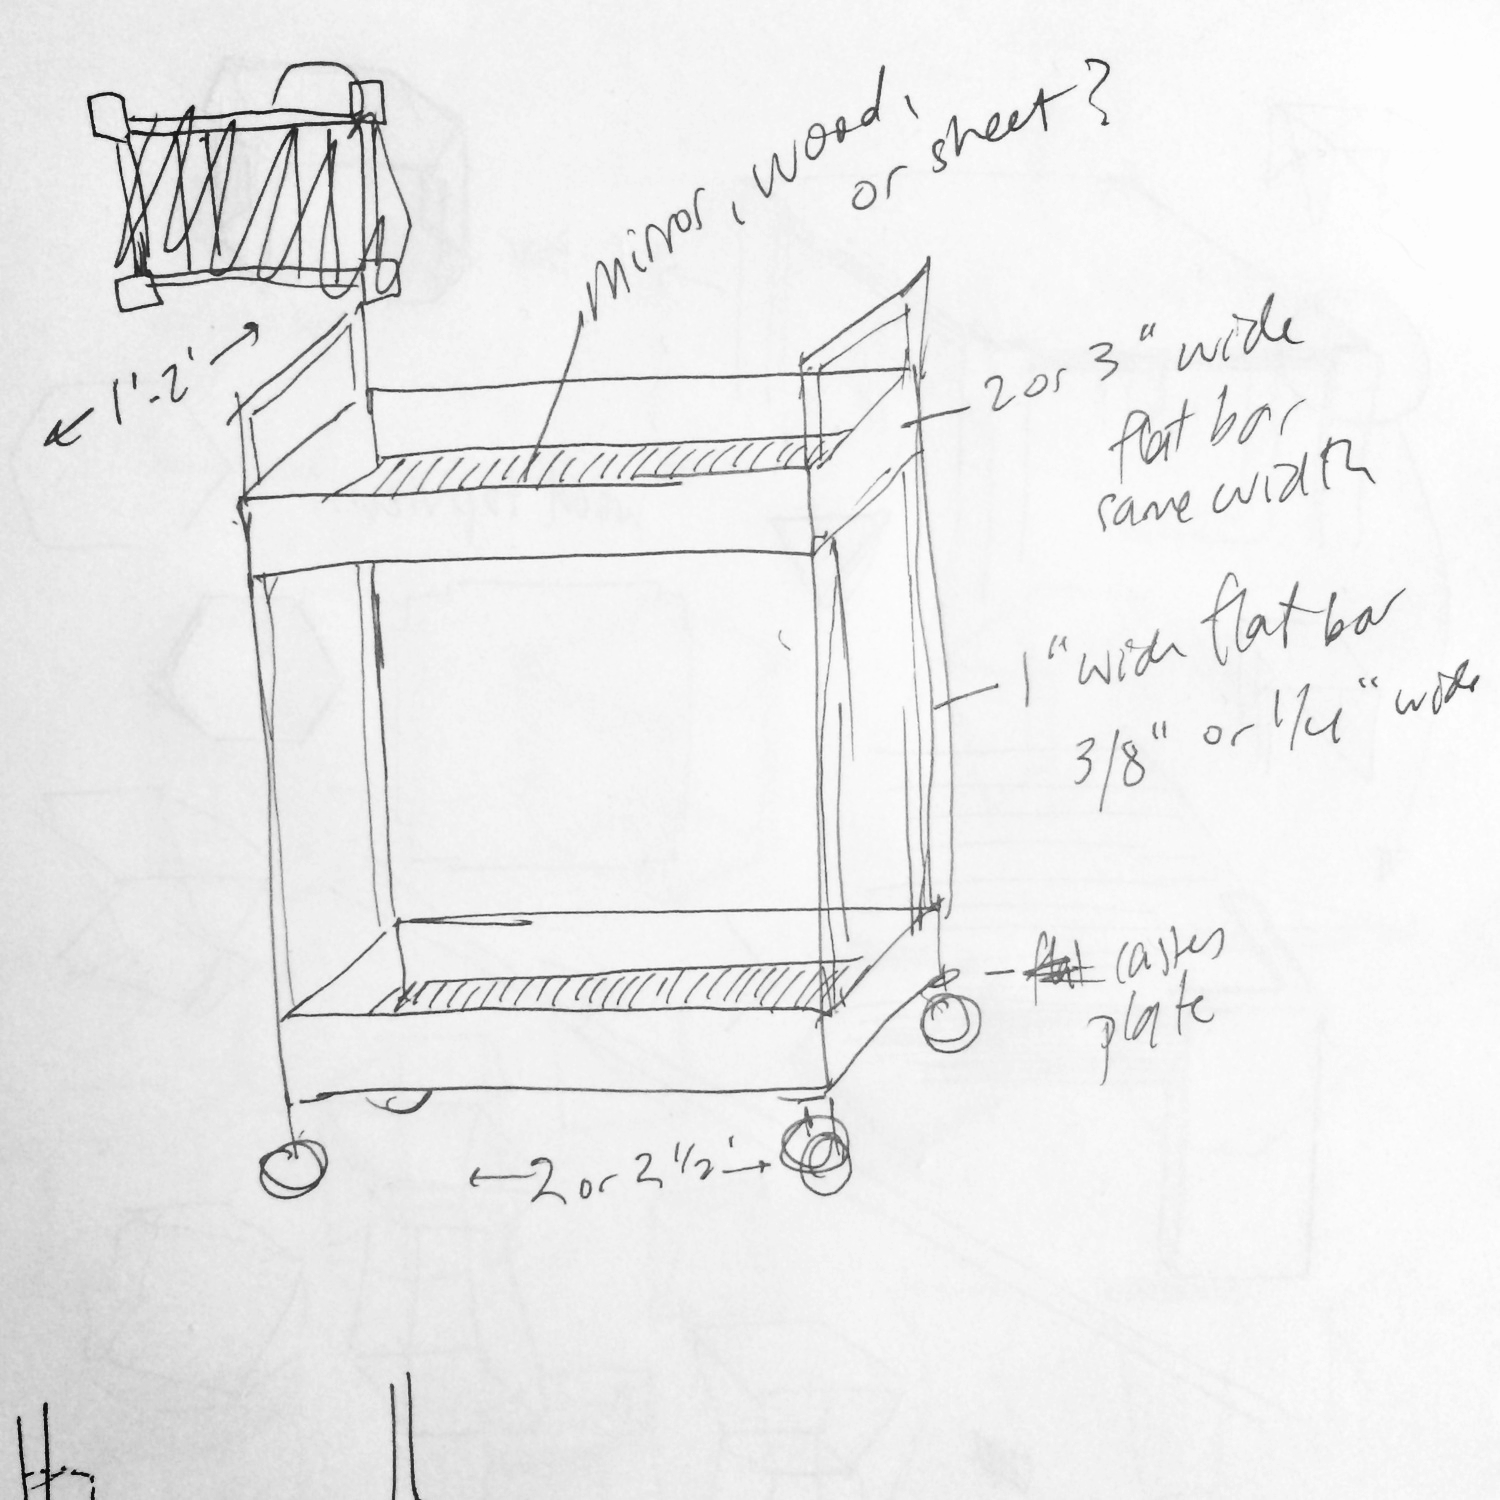 mirror, wood,
or sheet?
1'-2'
2 or 3" wide
flat bar
same width
1" wide flat bar
3/8" or 1/4" wide
caster
plate
2 or 2 1/2'